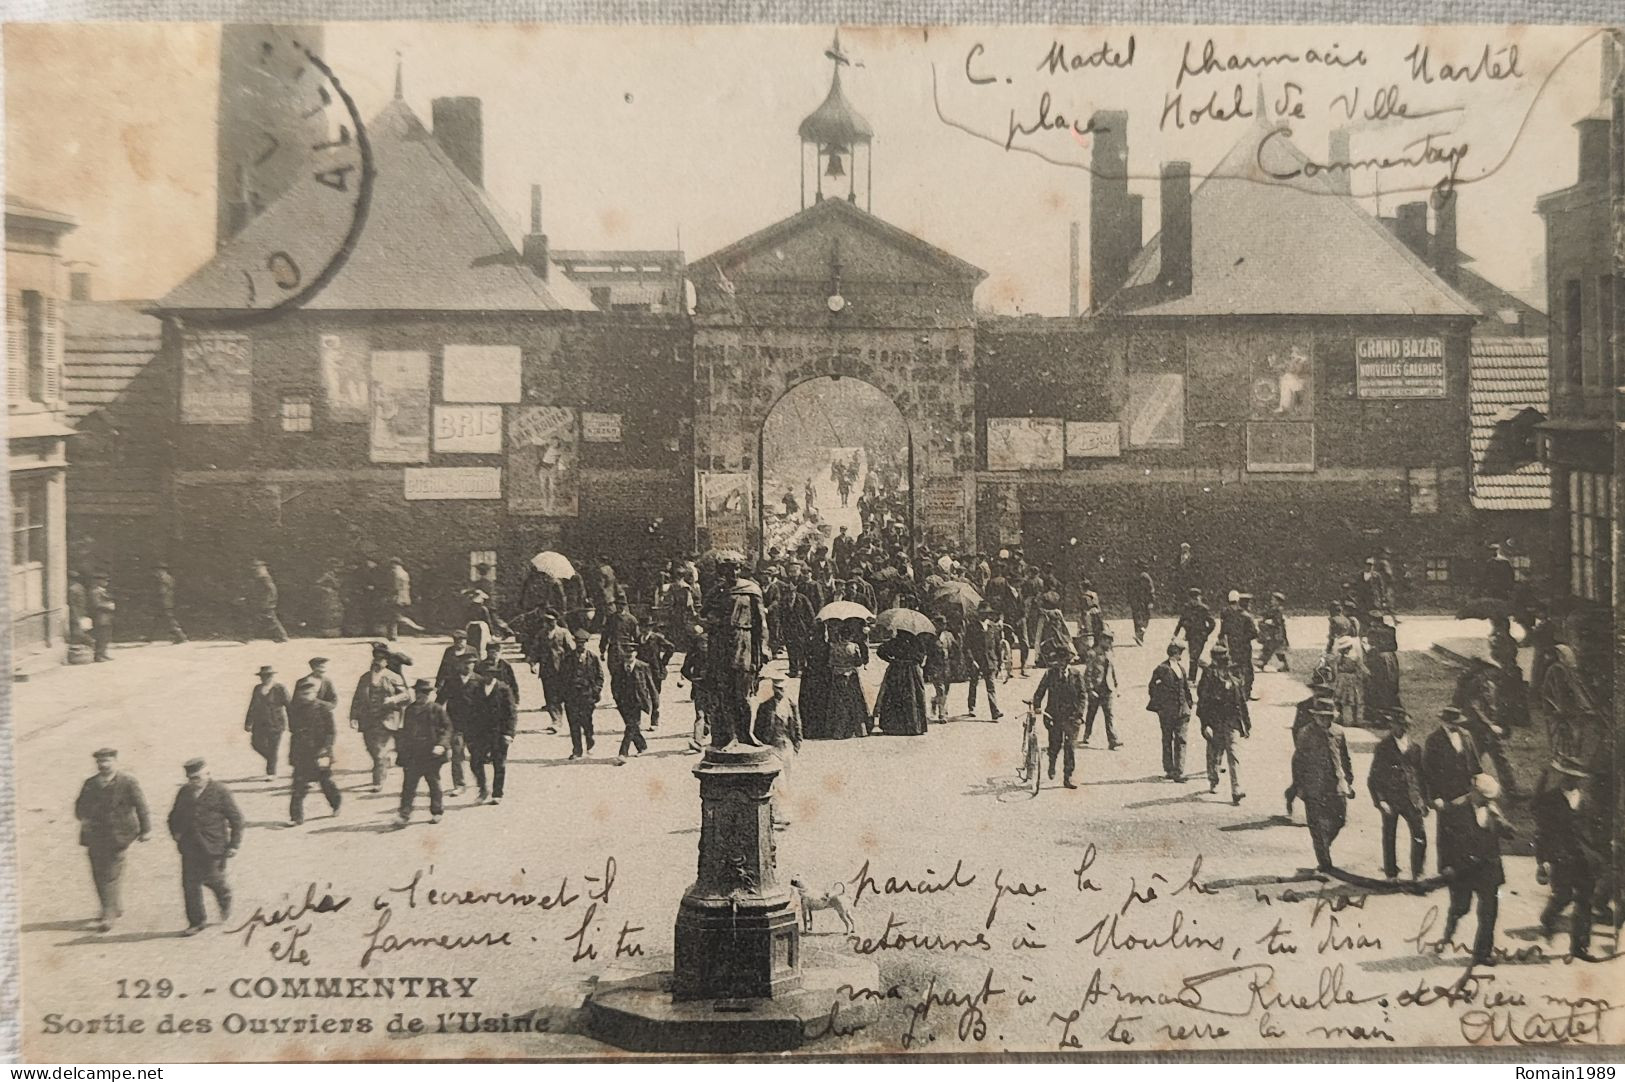 C. Martel pharmacie Martel
place Hotel de Ville
Commentry
ALLIER
GRAND BAZAR
NOUVELLES GALERIES
BRIS
pêché à l'écrevisse et il
parait que la pêche n'a pas
été fameuse. Si tu
retournes à Moulins, tu diras bonjour de
129. - COMMENTRY
ma part à Armand Ruelle. Adieu mon
Sortie des Ouvriers de l'Usine
cher J. B. Je te serre la main CMartel
Romain1989